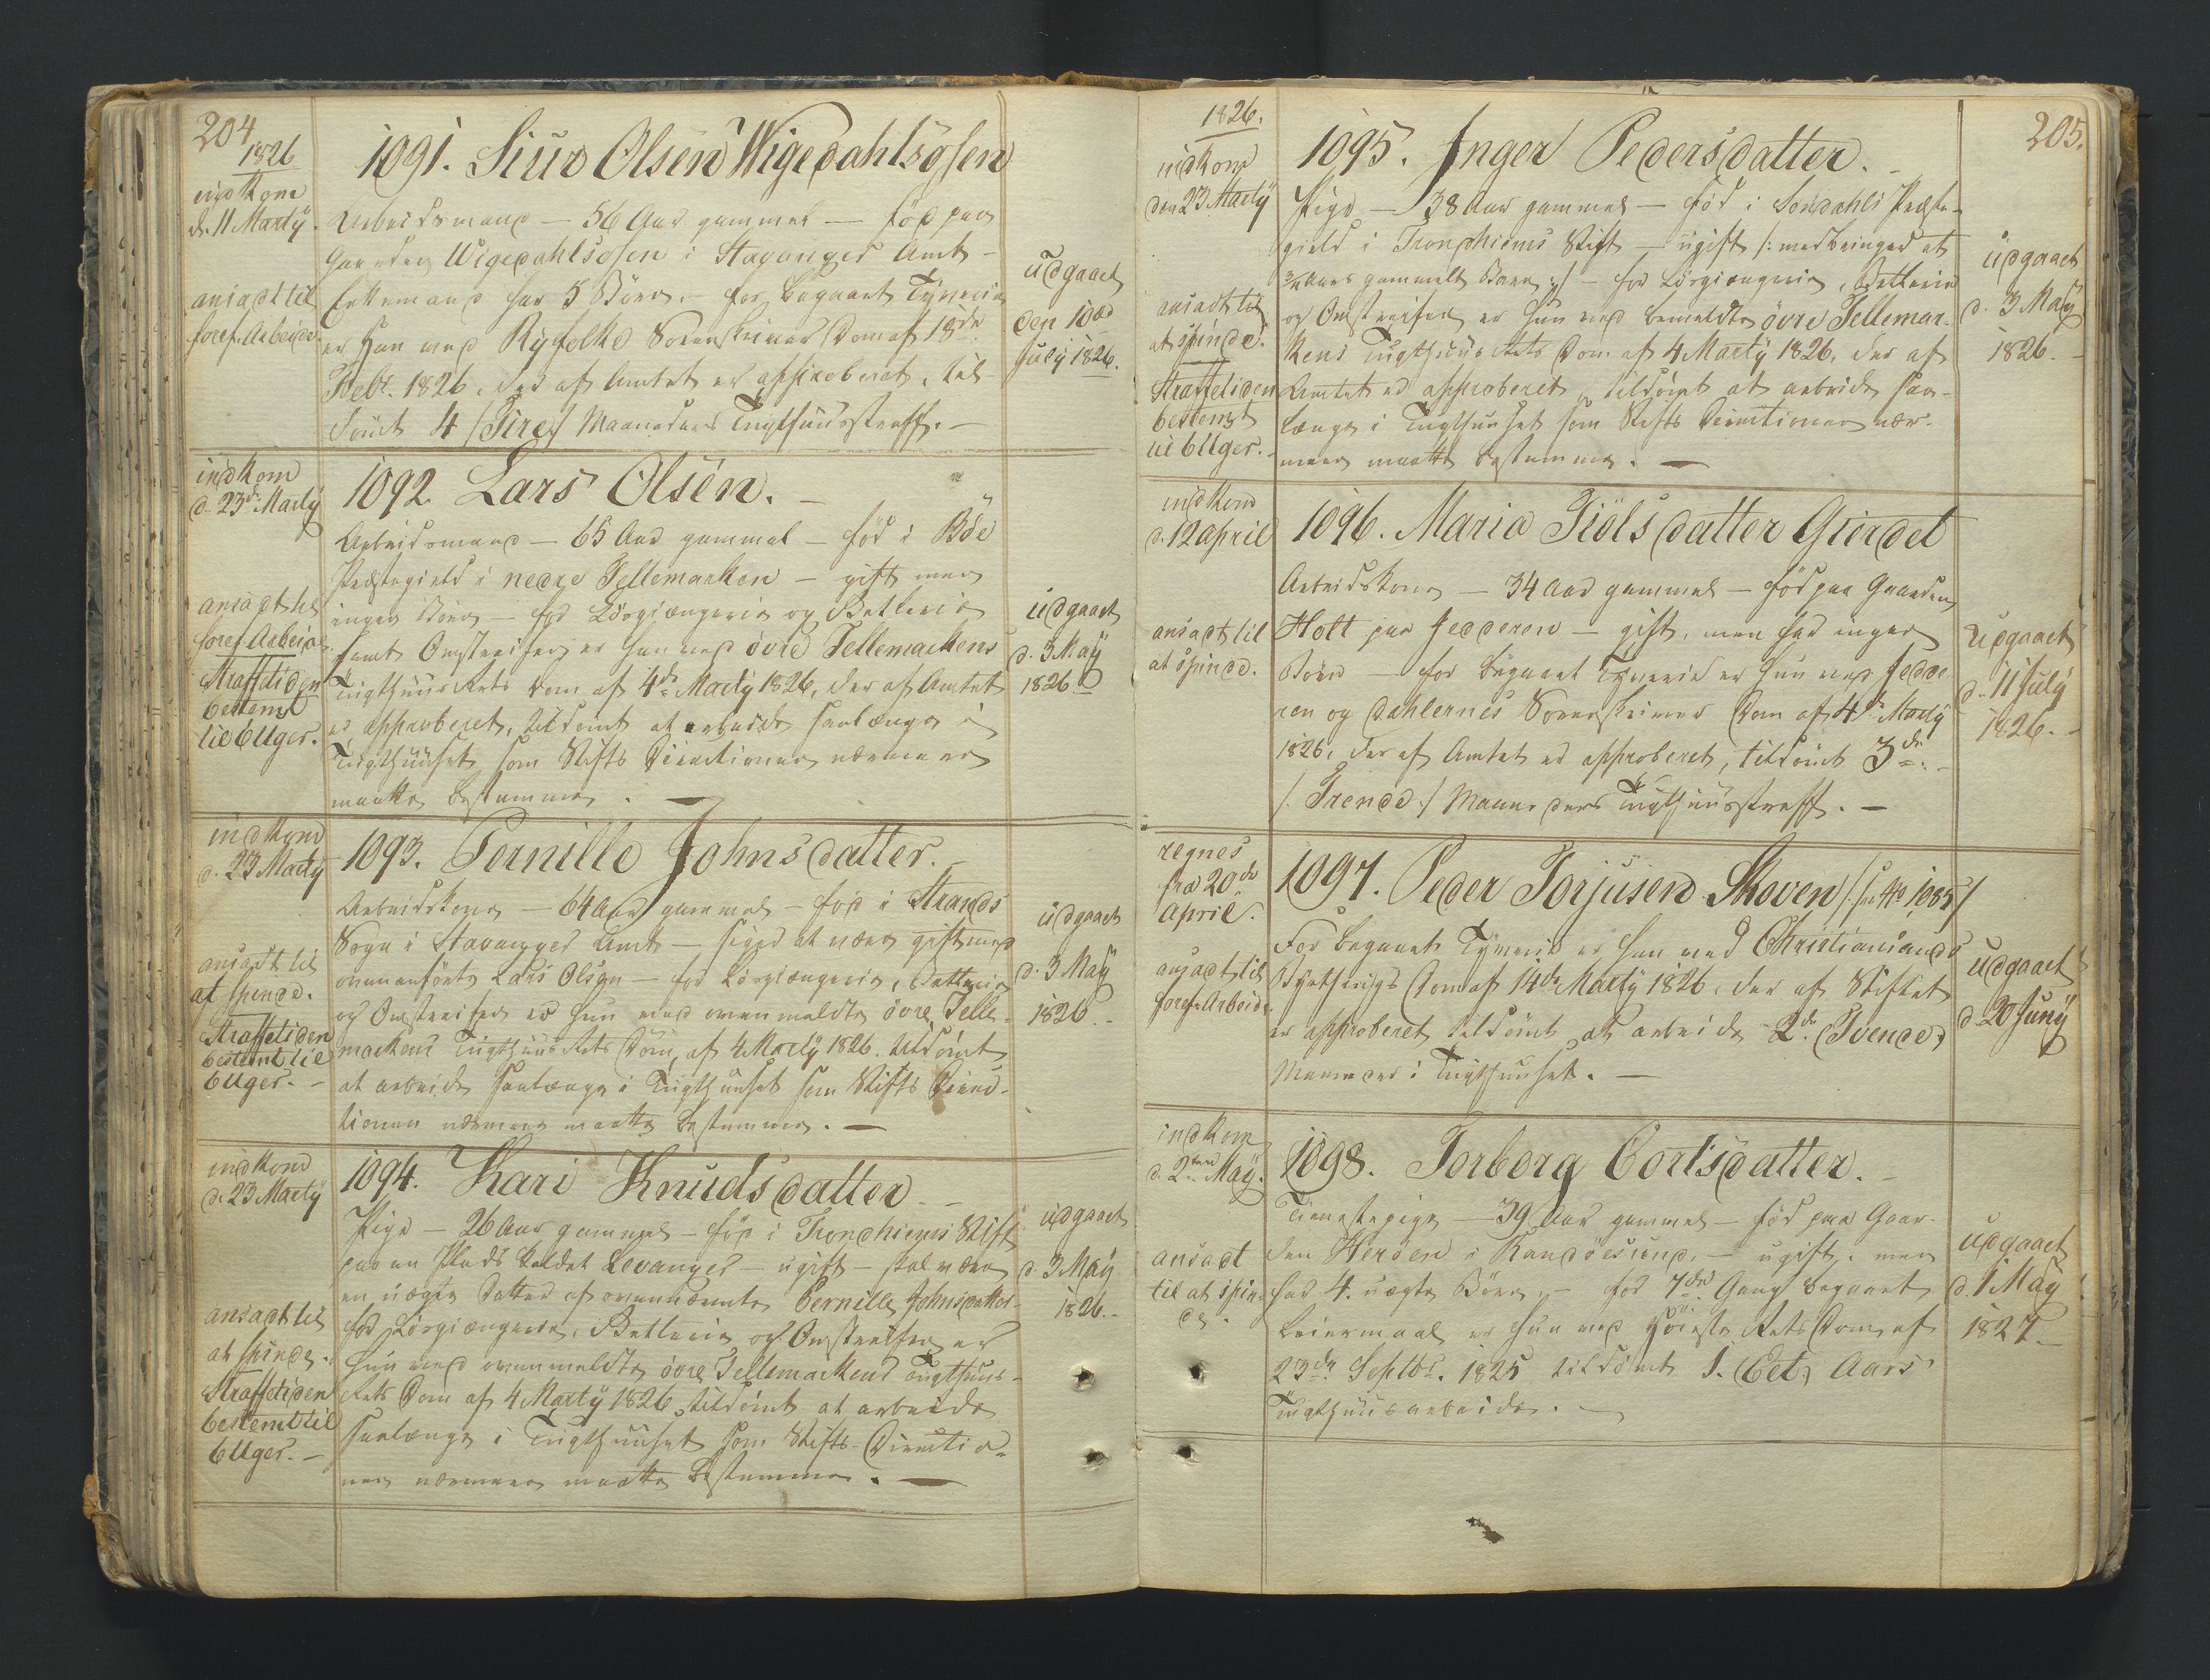 204
1826
indkom
d. 11 Martÿ.
ansadt til
foref. Arbeide
1091. Siur Olsen Wigedahlsøsen
Arbeidsmand – 56 Aar gammel – fød paa
Gaarden Wigedahlsøsen i Stavanger Amt –
Enkemand har 5 Børn. – for begaaet Tÿverie
er han ved Rÿfÿlke Sorenskriver Dom af 18de
Febr. 1826, der af Amtet er approberet, til-
dømt 4 /:Fire:/ Maaneders Tugthuusstraff. –
udgaaet
den 10de
Julÿ 1826.
indkom
d. 23de Martÿ
ansadt til
foref. Arbeide
Straffetiden
bestemt
til 6 Uger.
1092. Lars Olsen. –
Arbeidsmand – 65 Aar gammel – fød i Böe
Præstegield i nedre Tellemarken – gift men
ingen Børn – for Løsgiængerie og Betlerie
samt Omstreifen er han ved øvre Tellemarkens
Tugthuus Rets Dom af 4de Martÿ 1826, der af Amtet
er approberet, tildømt at arbeide saalænge i
Tugthuuset som Stifts Directionen nærmere
maatte bestemme. –
udgaaet
d. 3 Maÿ
1826
indkom
d. 23 Martÿ
ansadt til
at spinde.
Straffetiden
bestemt til
6 Uger. –
1093. Pernille Johnsdatter. –
Arbeidskone – 64 Aar gammel – fød i Strands
Sogn i Stavanger Amt – siger at være gift med
ovenanførte Lars Olsen – for Løsgiængerie, Betlerie
og Omstreifen er hun ved ovenmeldte øvre Telle-
markens Tugthuus Rets Dom af 4 Martÿ 1826 tildømt
at arbeide saalænge i Tugthuuset som Stifts Direc-
tionen nærmere maatte bestemme. –
udgaaet
d. 3 Maÿ
1826. –
indkom
d. 23 Martÿ
ansadt til
at spinde.
Straffetiden
bestemt til
6 Uger. –
1094. Kari Knudsdatter –
Pige – 26 Aar gammel – fød i Trondhiems Stift
paa en Plads kaldet Levanger – ugift – skal være
en uægte Datter af ovennævnte Pernille Johnsdatter
for Løsgiængerie, Betlerie og Omstreifen er
hun ved ovenmeldte øvre Tellemarkens Tugthuus-
Rets Dom af 4 Martÿ 1826 tildømt at arbeide
saalænge i Tugthuuset som Stifts-Directio-
nen nærmere maatte bestemme. –
udgaaet
d. 3 Maÿ
1826. –
205.
1826.
indkom
den 23 Martÿ
ansadt til
at spinde.
Straffetiden
bestemt
til 6 Uger. –
1095. Inger Pedersdatter. –
Pige – 38 Aar gammel – fød i Sondahls Præste-
gield i Trondhiems Stift – ugift /: medbringer et
3/4 Aars gammelt Barn :/ – for Løsgiængerie, Betlerie
og Omstreifen er hun ved bemeldte øvre Tellemar-
kens Tugthuus Rets Dom af 4 Martÿ 1826, der af
Amtet er approberet, tildømt at arbeide saa-
længe i Tugthuuset som Stifts Directionen nær-
mere maatte bestemme. –
udgaaet
d. 3 Maÿ
1826. –
indkom
d. 12 april
ansadt til
at spinde.
1096. Maria Fiölsdatter Gierdet
Arbeidskone – 34 Aar gammel – fød paa Gaarden
Holt paa Jedderen – gift, men har ingen
Børn – for begaaet Tÿverie er hun ved Jedde-
ren og Dahlernes Sorenskriver Dom af 4de Martÿ
1826, der af Amtet er approberet, tildømt 3de. –
/: Trende :/ Maaneders Tugthuusstraff. –
udgaaet
d. 11 Julÿ
1826. –
regnes
fra 20de
April.
ansadt til
foref. Arbeide
1097. Peder Torjusen Skoven /: see No 1085 :/
For begaaet Tÿverie er han ved Christiansands
Bÿetings Dom af 14de Martÿ 1826, der af Stiftet
er approberet tildømt at arbeide 2de (Tvende)
Maaneder i Tugthuuset. –
udgaaet
d. 20 Junÿ
indkom
d. 2den Maÿ.
ansadt
til at spin-
de.
1098. Torborg Cortsdatter. –
Tienestepige – 39 Aar gammel – fød paa Gaar-
den Herøen i Randøesund. – ugift, men
har 4 uægte Børn, – for 7de Gang begaaet
Leiermaal er hun ved Høieste Rets Dom af
23de Septbr. 1825 tildømt 1. (Eet) Aars
Tugthuusarbeide. –
udgaaet
d. 1 Maÿ
1827 –